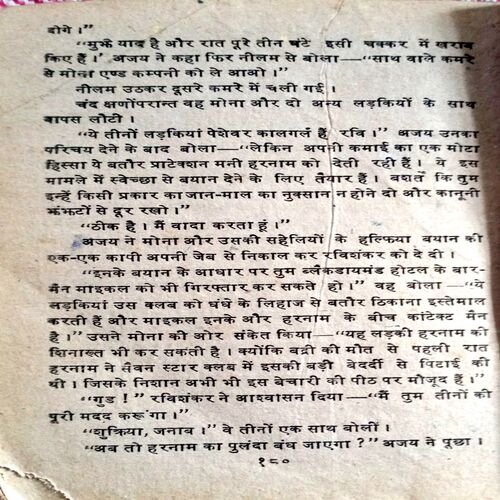 दोगे।”
“मुझे याद है और रात पूरे तीन घंटे इसी चक्कर में खराब
किए हैं।’ अजय ने कहा फिर नीलम से बोला—“साथ वाले कमरे
से मोना एण्ड कम्पनी को ले आओ।”
नीलम उठकर दूसरे कमरे में चली गई।
चंद क्षणोंपरान्त वह मोना और दो अन्य लड़कियों के साथ
वापस लौटी।
“ये तीनों लड़कियां पेशेवर कालगर्ल हैं, रवि।” अजय उनका
परिचय देने के बाद बोला—“लेकिन अपनी कमाई का एक मोटा
हिस्सा ये बतौर प्राटेक्शन मनी हरनाम को देती रही हैं। ये इस
मामले में स्वेच्छा से बयान देने के लिए तैयार हैं। बशर्ते कि तुम
इन्हें किसी प्रकार का जान-माल का नुक्सान न होने दो और कानूनी
झंझटों से दूर रखो।”
“ठीक है। मैं वादा करता हूं।”
अजय ने मोना और उसकी सहेलियों के हल्फिया बयान की
एक-एक कापी अपनी जेब से निकाल कर रविशंकर को दे दी।
“इनके बयान के आधार पर तुम ब्लैकडायमंड होटल के बार-
मैन माइकल को भी गिरफ्तार कर सकते हो।” वह बोला—“ये
लड़कियां उस क्लब को धंधे के लिहाज से बतौर ठिकाना इस्तेमाल
करती हैं और माइकल इनके और हरनाम के बीच कांटेक्ट मैन
है।” उसने मोना की ओर संकेत किया—“यह लड़की हरनाम की
शिनाख्त भी कर सकती है। क्योंकि बद्री की मौत से पहली रात
हरनाम ने सैवन स्टार क्लब में इसकी बड़ी बेदर्दी से पिटाई की
थी। जिसके निशान अभी भी इस बेचारी की पीठ पर मौजूद हैं।”
“गुड!” रविशंकर ने आश्वासन दिया—“मैं तुम तीनों की
पूरी मदद करूंगा।”
“शुक्रिया, जनाब।” वे तीनों एक साथ बोलीं।
“अब तो हरनाम का पुलंदा बंध जाएगा?” अजय ने पूछा।
१८०